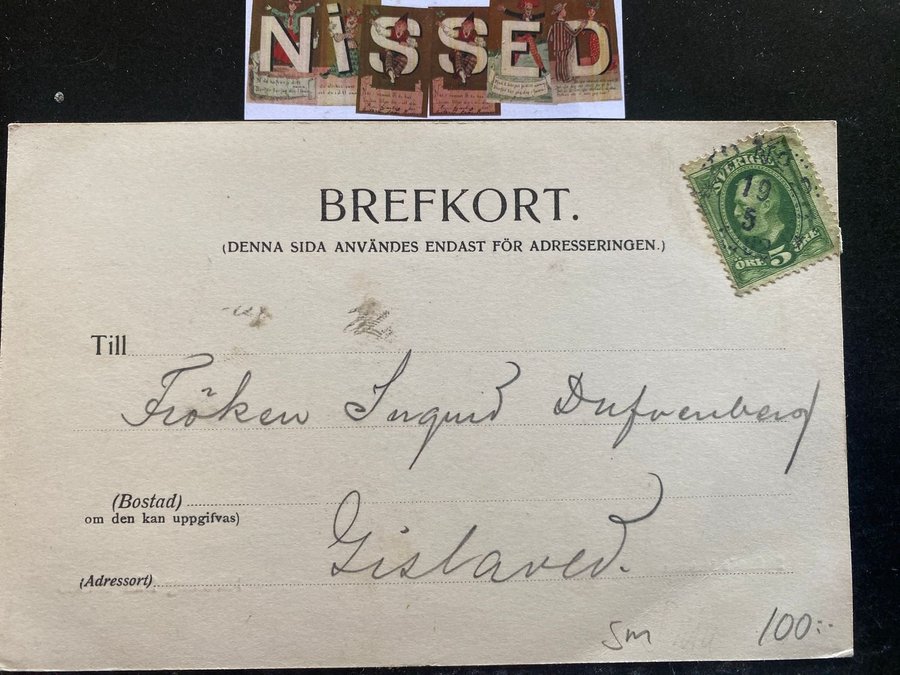 NISSED
BREFKORT.
(DENNA SIDA ANVÄNDES ENDAST FÖR ADRESSERINGEN.)
SVERIGE
19
5
ÖRE 5 ÖRE
Till
Fröken Ingrid Dufvenberg
(Bostad)
om den kan uppgifvas)
Gislaved.
(Adressort)
Sm
100:-